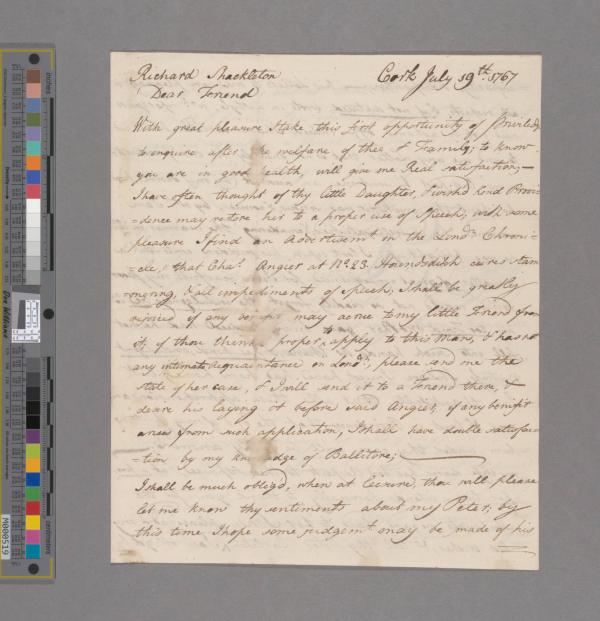 Richard Shackleton
Cork July 19th. 1767
Dear Friend
With great pleasure I take this first opportunity of
to enquire after the welfare of thee & Family; to know
you are in good health, will give me Real satisfaction;—
I have often thought of thy little Daughter, & wish'd kind Provi=
=dence may restore her to a proper use of Speech; with some
pleasure I find an Advertisemt. in the Londn. Chroni=
=cle, that Chas. Angier at No. 23 Houndsditch cures stam
=mering, & all impediments of speech; I shall be greatly
rejoiced if any benefit may acrue to my little Friend from
it, if thou thinks proper to apply to this Man, & has no
any intimate Acquaintance in Londn., please send me the
state of her case, & I will send it to a Friend there, &
desire his laying it before said Angier; if any benifit
arises from such application, I shall have double satisfac=
=tion by my knowledge of Ballitore;
I shall be much obligd, when at leisure, thou will please
let me know thy sentiments about my Peter; by
this time I hope some judgemt. may be made of his
inches
centimetres
Don Williams
M000519